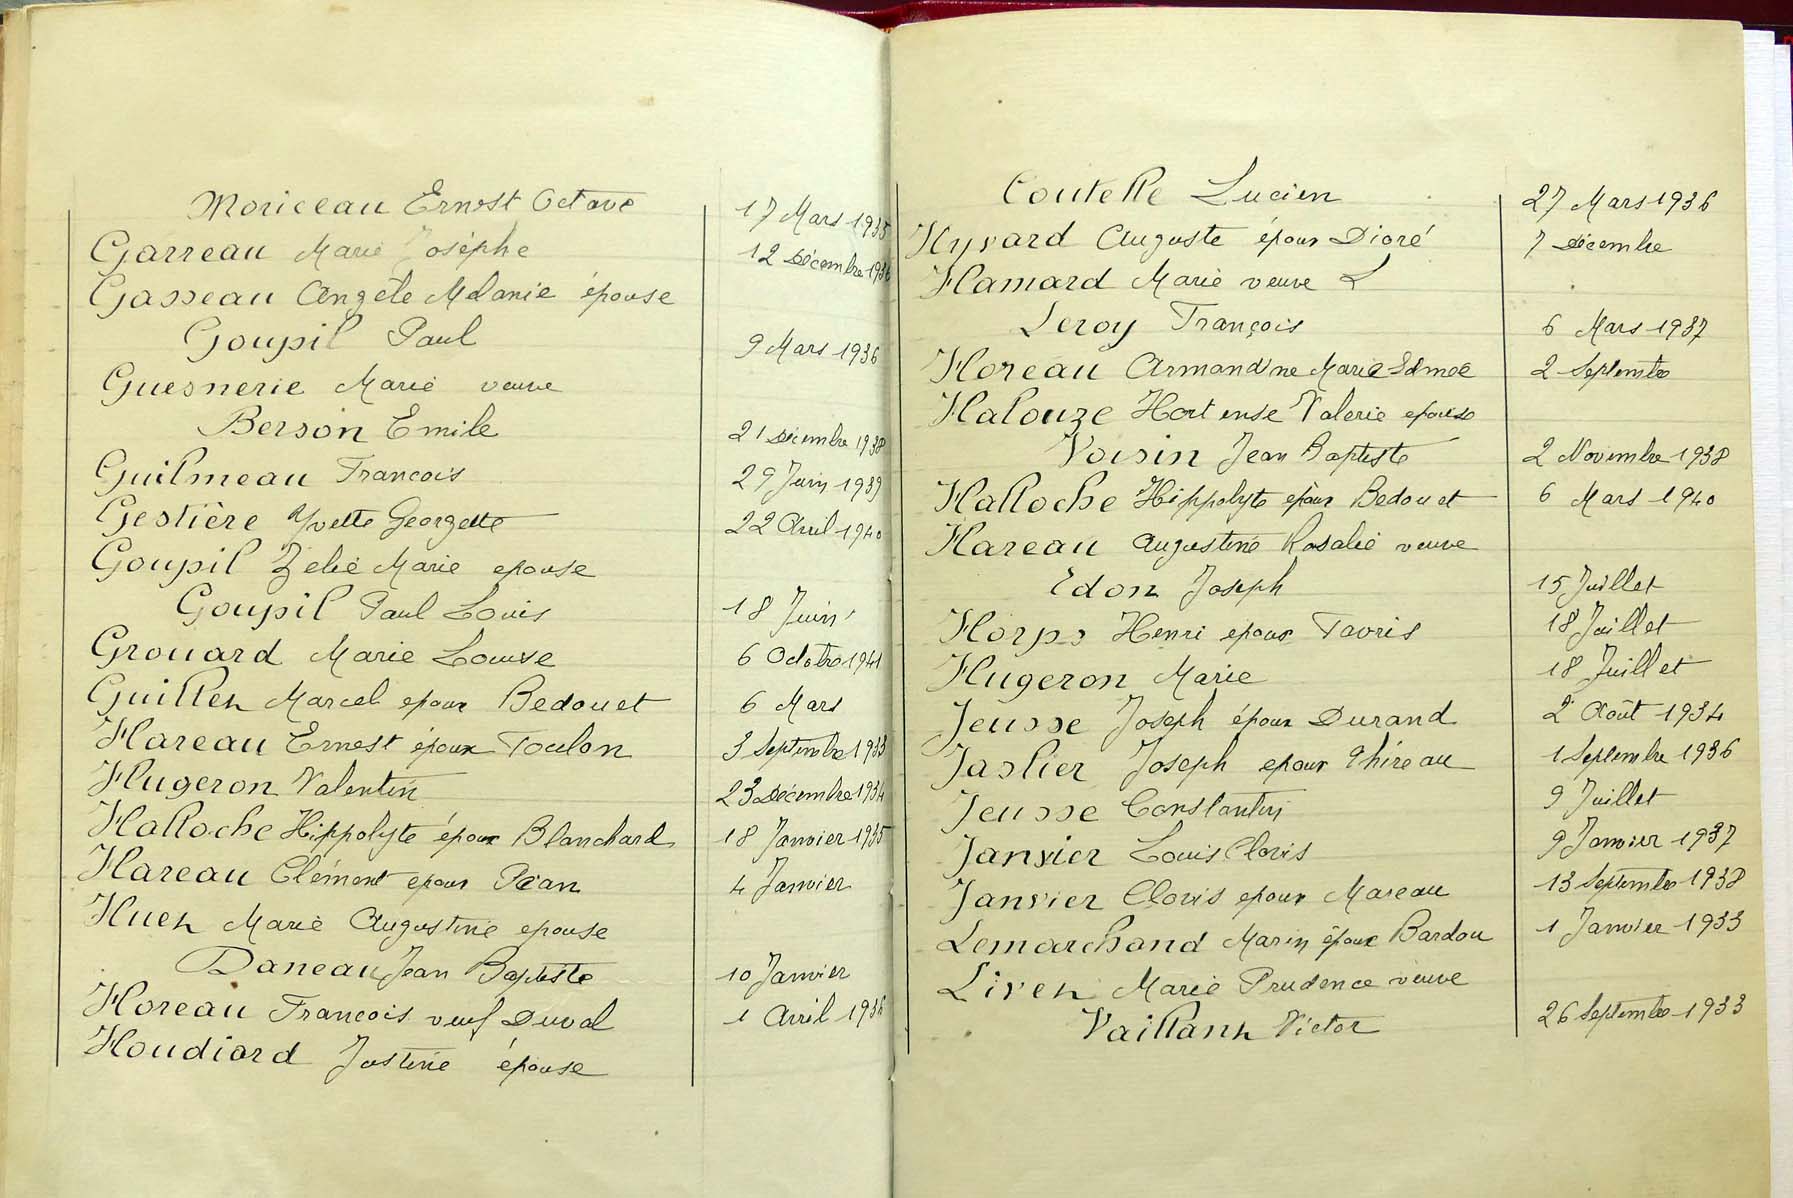 Moriceau Ernest Octave 17 Mars 1935
Garreau Marie Josèphe 12 Décembre 1936
Gasseau Angèle Mélanie épouse
Goupil Paul 9 Mars 1936
Guesnerie Marie veuve
Berson Emile 21 Décembre 1938
Guilmeau Francois 29 Juin 1939
Gestière Yvette Georgette 22 Avril 1940
Goupil Zélie Marie epouse
Goupil Paul Louis 18 Juin
Grouard Marie Louise 6 Octobre 1941
Guillen Marcel epoux Bedouet 6 Mars
Hareau Ernest époux Toulon 3 Septembre 1933
Hugeron Valentin 23 Décembre 1934
Halloche Hippolyte époux Blanchard 18 Janvier 1935
Hareau Clément epoux Péan 4 Janvier
Huen Marie Augustine epouse
Daneau Jean Baptiste 10 Janvier
Horeau Francois veuf Duval 1 Avril 1936
Houdiard Justine épouse
Coutelle Lucien 27 Mars 1936
Hyvard Auguste époux Dioré 7 Décembre
Hamard Marie veuve L
Leroy François 6 Mars 1937
Horeau Armandine Marie Edmée 2 Septembre
Halouze Hortense Valerie epouse
Voisin Jean Baptiste 2 Novembre 1938
Halloche Hippolyte epoux Bedouet 6 Mars 1940
Hareau Augustine Rosalie veuve
Edon Joseph 15 Juillet
Horps Henri epoux Tavris 18 Juillet
Hugeron Marie 18 Juillet
Jeusse Joseph époux Durand 2 Août 1934
Jaslier Joseph epoux Thireau 1 Septembre 1936
Jeusse Constantin 9 Juillet
Janvier Louis Clovis 9 Janvier 1937
Janvier Clovis epoux Mareau 13 Septembre 1938
Lemarchand Marin époux Bardou 1 Janvier 1933
Liven Marie Prudence veuve
Vaillant Victor 26 Septembre 1933